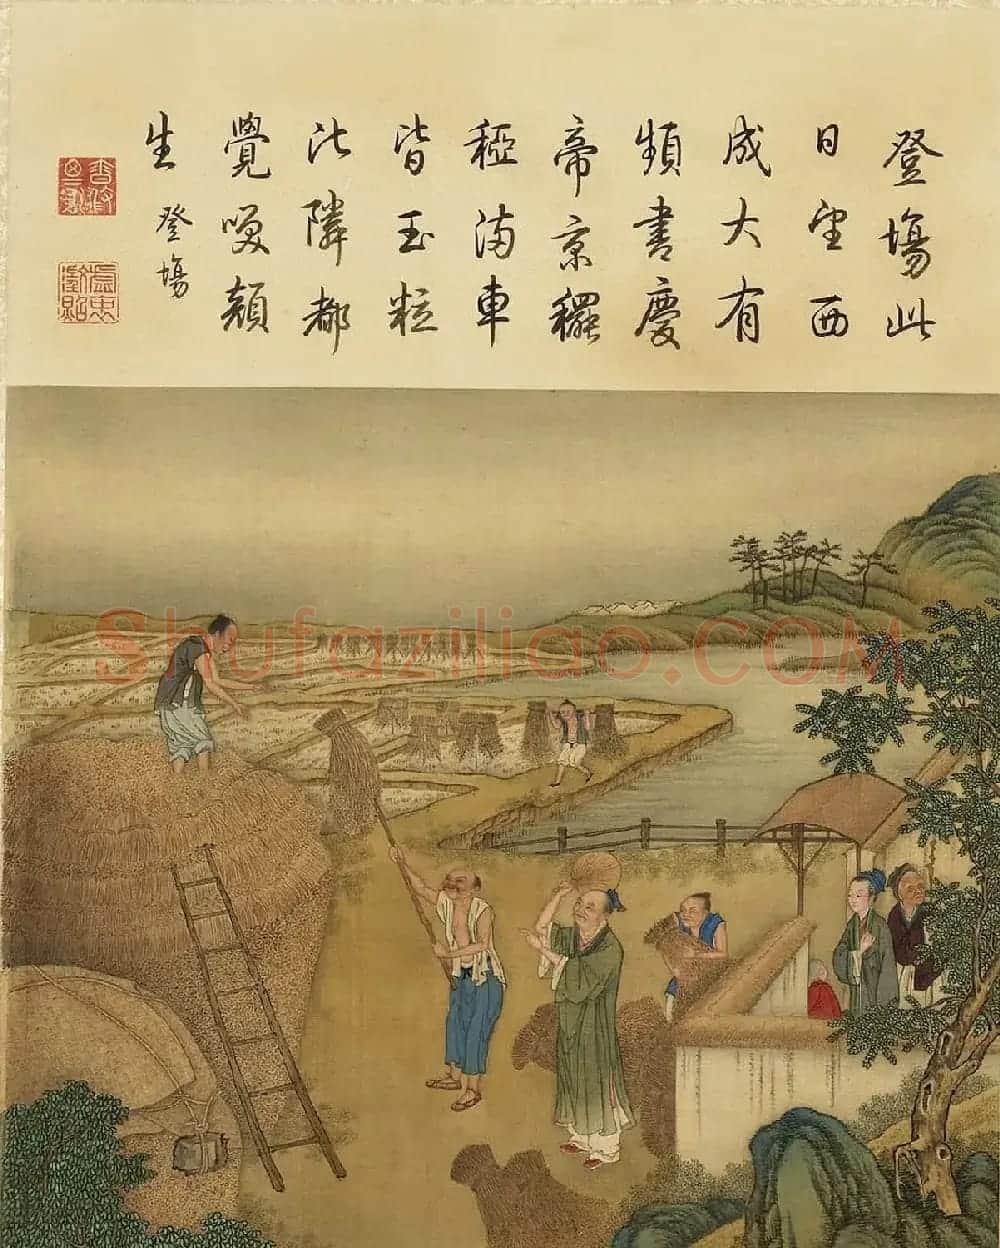 登場此
日望西
成大有
頻書慶
帝京穲
稏滿車
皆玉粒
比隣都
覺笑顔
生
登場
Shufaziliao.COM